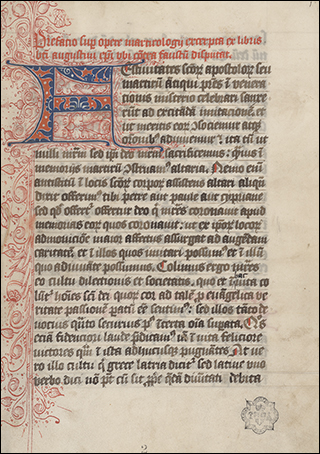 Prefatio sup opere martirologij excerpta ex libris
bti augustini epi ubi contra faustu disputat
Festiuitates scor apostolor seu
martiru antiqui pres in venera
tionis misterio celebrari sanxe
runt ad excitada imitatione et
ut meritis eor osocientur atq
oronibus adiuuentur ita tn ut
nulli martiru sed ipi deo martiru sacrificemus quuis in
memorijs martiru ostituam altaria Nemo eni
antistitu in locis scor corpor assistens altari aliqn
dixit offerim tibi petre aut paule aut cypriane
sed qd offertur offertur deo qui martires coronauit apud
memorias eor quos coronauit ut ex ipor locor
admonicione maior affectus assurgat ad augenda
caritate et in illos quos imitari possum et in illu
quo adiuuante possumus Colimus ergo martires
eo cultu dilectionis et societatis quo et in hac vita co
lunt hoies sci dei quor cor ad tale pro euangelica ve
ritate passione parati esse sentim sed illos tanto de
uocius quto securius post certamina superata
etia fidentiori laude predicam in vita feliciore
victores qm in ista adhuc usq pugnantes At ve
ro illo cultu q grece latria dicit sed latine vno
verbo dici no pt cu sit pprie queda diuinitati debita
2